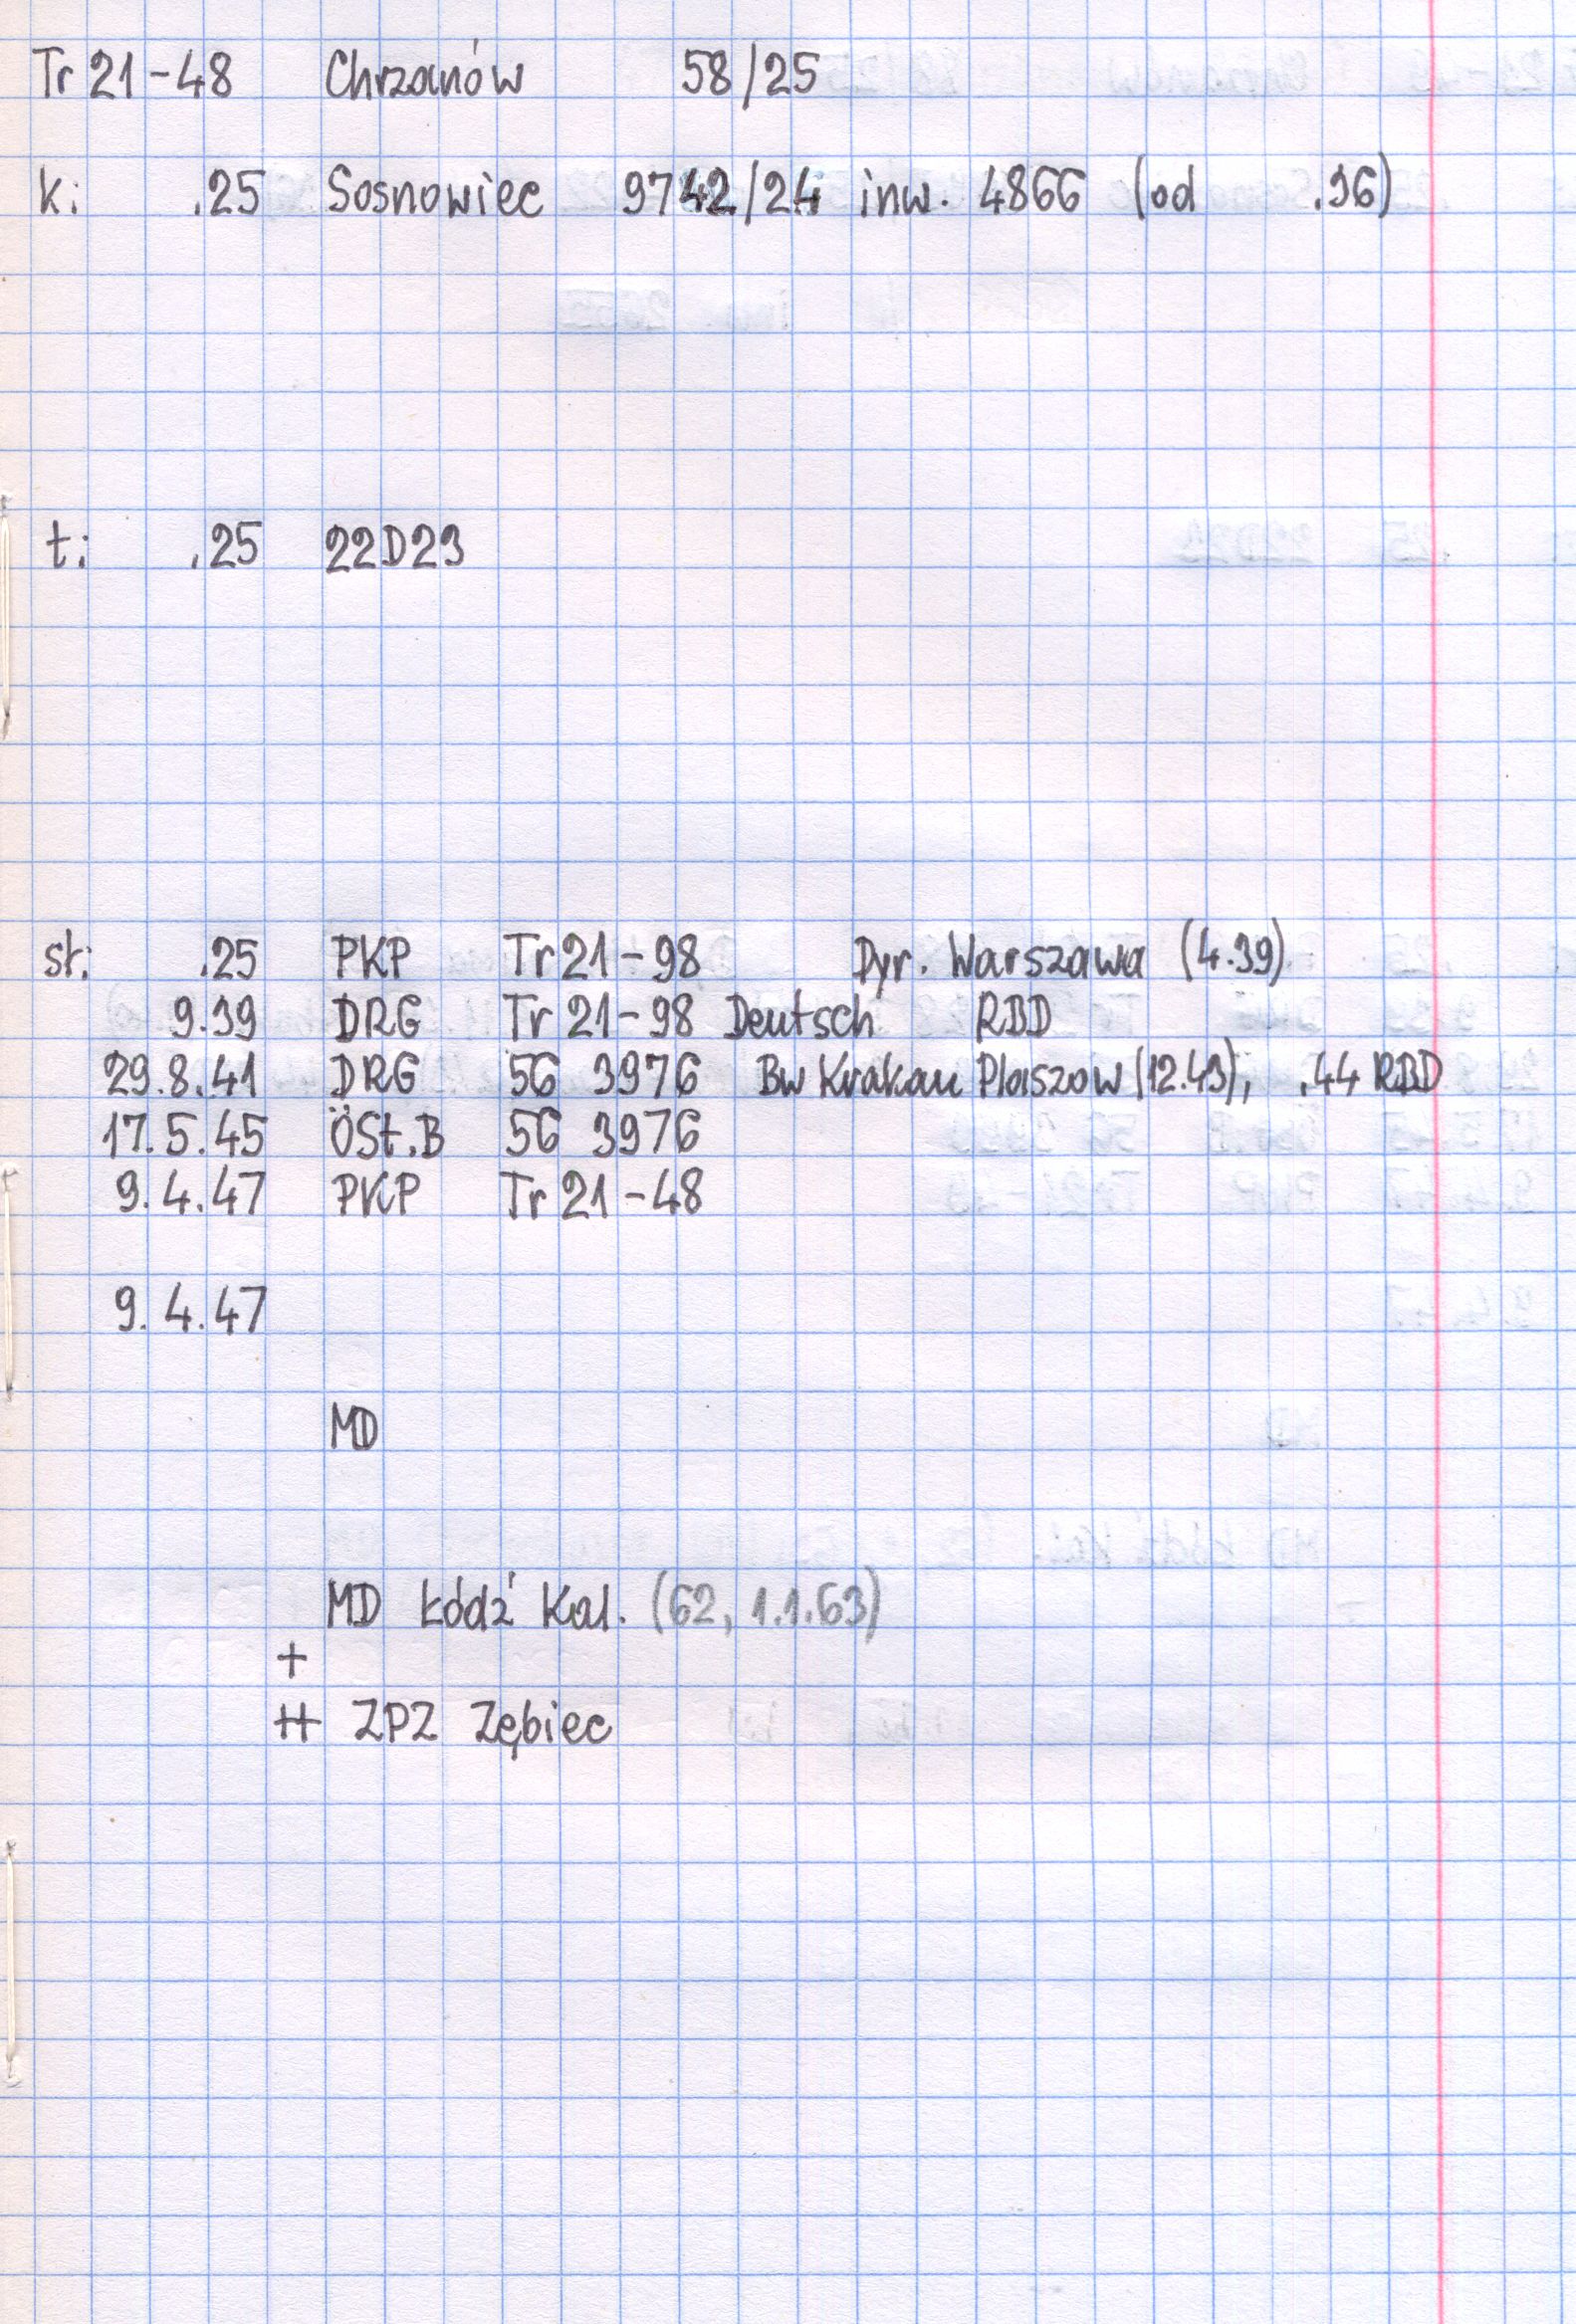 Tr 21-48 Chrzanów 58/25
k: .25 Sosnowiec 9742/24 inw. 4866 (od .36)
t: .25 22D23
st: .25 PKP Tr 21-98 Dyr. Warszawa (4.39)
9.39 DRG Tr 21-98 Deutsch RBD
29.8.41 DRG 56 3976 Bw Krakau Plaszow (12.43), .44 RBD
17.5.45 ÖSt.B 56 3976
9.4.47 PKP Tr 21-48
9.4.47
MD
MD Łódź Kal. (62, 1.1.63)
+
++ ZPZ Zębiec